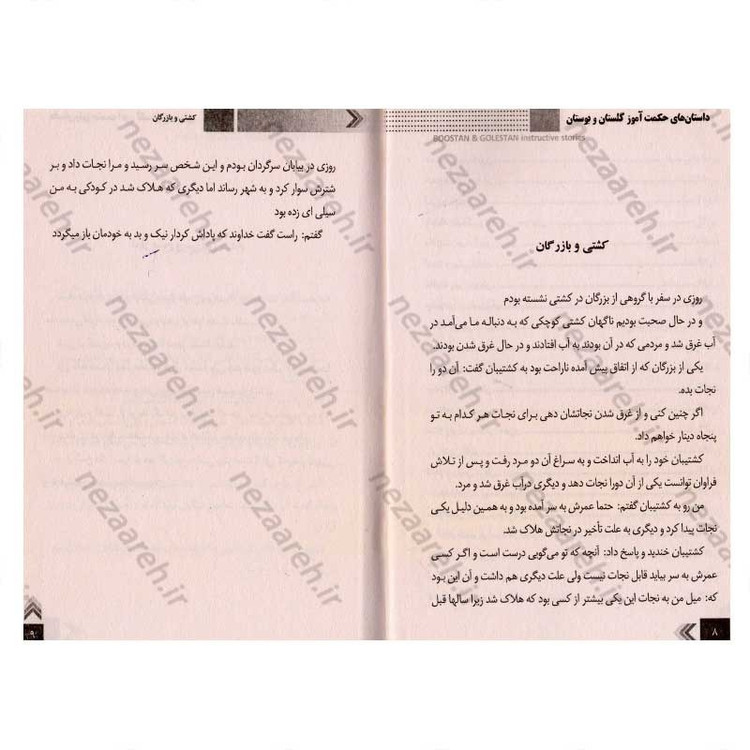 داستان‌های حکمت آموز گلستان و بوستان
BOOSTAN & GOLESTAN instructive stories
کشتی و بازرگان
روزی در سفر با گروهی از بزرگان در کشتی نشسته بودم
و در حال صحبت بودیم ناگهان کشتی کوچکی که به دنباله ما می‌آمد در
آب غرق شد و مردمی که در آن بودند به آب افتادند و در حال غرق شدن بودند.
یکی از بزرگان که از اتفاق پیش آمده ناراحت بود به کشتیبان گفت: آن دو را
نجات بده.
اگر چنین کنی و از غرق شدن نجاتشان دهی برای نجات هر کدام به تو
پنجاه دینار خواهم داد.
کشتیبان خود را به آب انداخت و به سراغ آن دو مرد رفت و پس از تلاش
فراوان توانست یکی از آن دورا نجات دهد و دیگری درآب غرق شد و مرد.
من رو به کشتیبان گفتم: حتما عمرش به سر آمده بود و به همین دلیل یکی
نجات پیدا کرد و دیگری به علت تأخیر در نجاتش هلاک شد.
کشتیبان خندید و پاسخ داد: آنچه که تو می‌گویی درست است و اگر کسی
عمرش به سر بیاید قابل نجات نیست ولی علت دیگری هم داشت و آن این بود
که: میل من به نجات این یکی بیشتر از کسی بود که هلاک شد زیرا سالها قبل
۸
کشتی و بازرگان
روزی در بیابان سرگردان بودم و این شخص سر رسید و مرا نجات داد و بر
شترش سوار کرد و به شهر رساند اما دیگری که هلاک شد در کودکی به من
سیلی ای زده بود
گفتم: راست گفت خداوند که پاداش کردار نیک و بد به خودمان باز میگردد
۹
nezaareh.ir